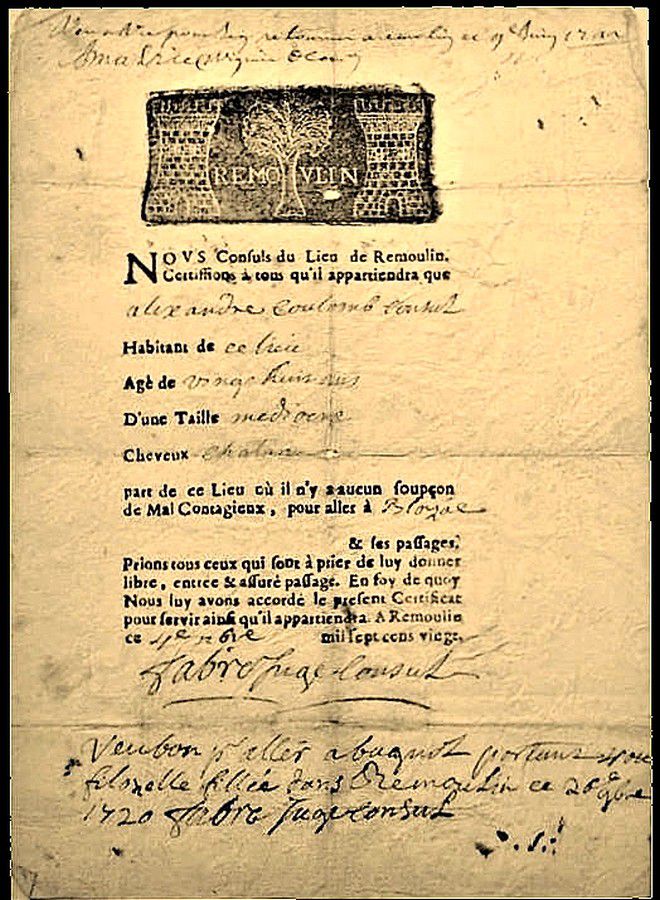 retourner
REMOVLIN
NOVS Consuls du Lieu de Remoulin.
Certiffions à tous qu'il appartiendra que
alexandre coulomb consul
Habitant de ce lieu
Agé de vingt huit ans
D'une Taille mediocre
Cheveux chatain
part de ce Lieu où il n'y a aucun soupçon
de Mal Contagieux, pour aller à
& ses passages,
Prions tous ceux qui sont à prier de luy donner
libre, entrée & assuré passage. En foy de quoy
Nous luy avons accordé le present Certificat
pour servir ainsi qu'il appartiendra. A Remoulin
ce 4e mil sept cens vingt.
fabre Juge Consul
Veu bon pr aller a portant
fillée dans Remoulin ce 26e 9bre
1720 fabre Juge consul